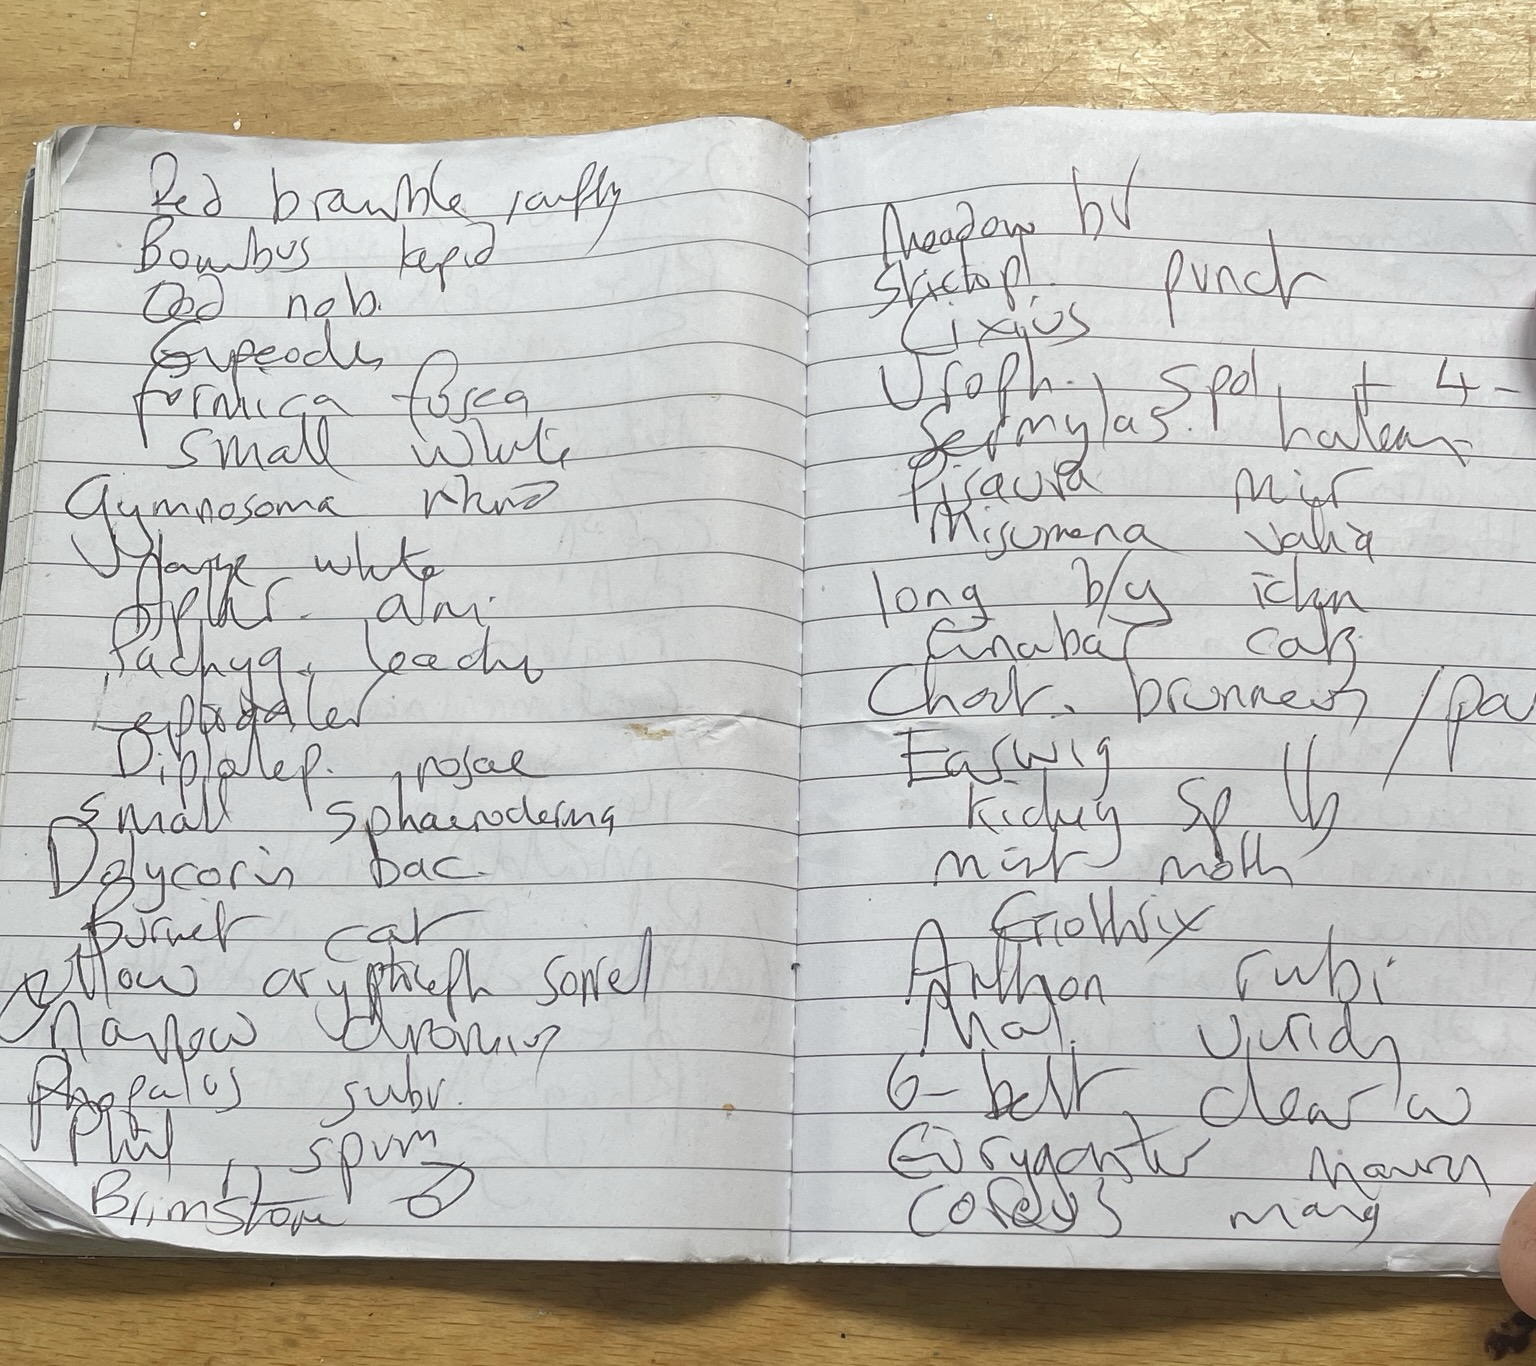 Red bramble sawfly
Bombus lapid
Oed nob.
Eupeodes
formica fusca
small white
Gymnosoma
V large white
alni
Pachyg. leachi
Diplolep. rosae
small sphaeroderma
Dolycoris bac.
Burnet cat
yellow cryptceph sorrel
narrow dromius
Rhopalus subr.
Phil. spum
Brimstone
Meadow br
Stictopl. punct
Cixius
Uroph. spol + 4-
Sermylas. halen
Pisaura mir
Misumena vatia
long b/y ichn
Cinabar cats
Chort. brunneus / pa
Earwig
Kidney sp lb
mint moth
Eriothrix
Anthon rubi
Mal. viridis
6-belt. clear w
Eurygaster maura
Coreus marg